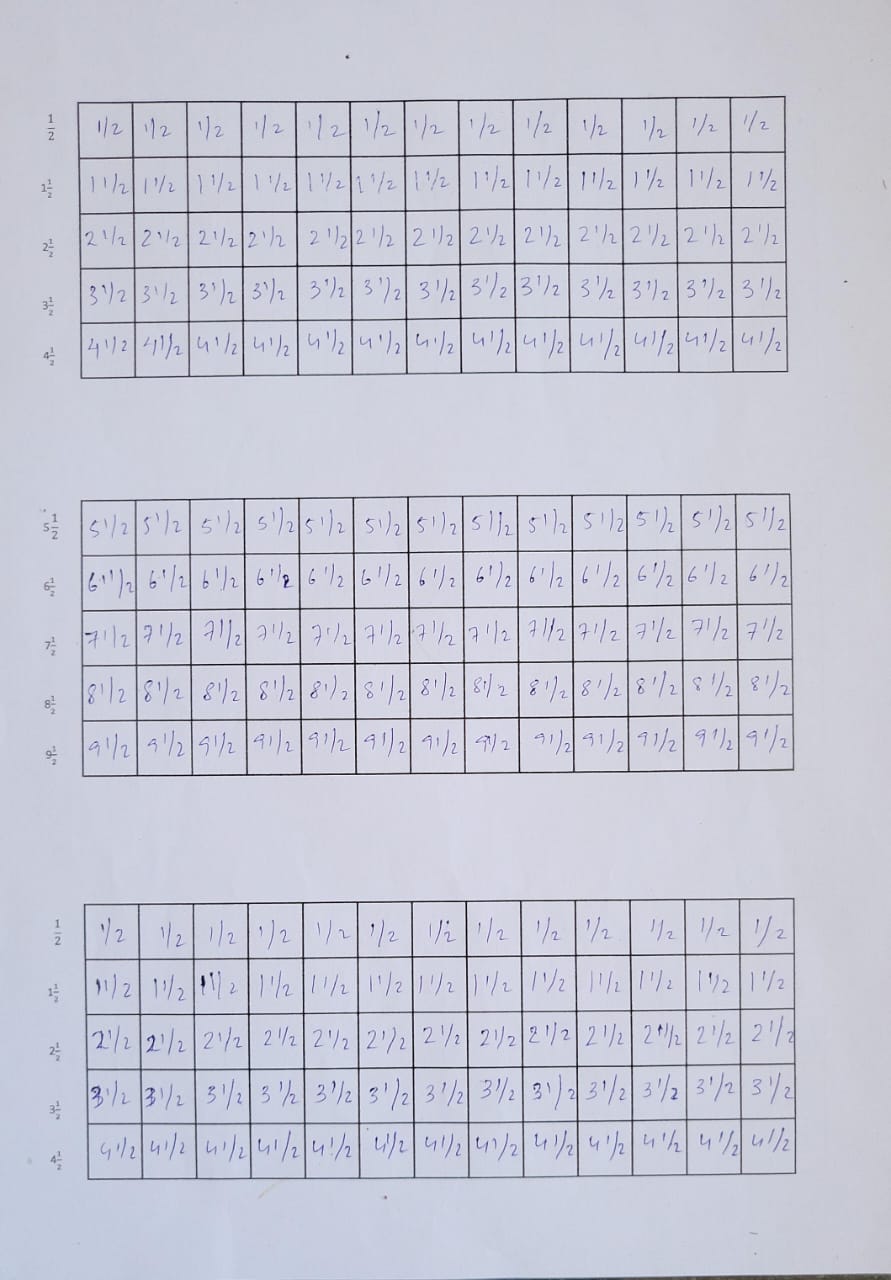 1/2 1/2 1/2 1/2 1/2 1/2 1/2 1/2 1/2 1/2 1/2 1/2 1/2 1/2
1 1/2 1 1/2 1 1/2 1 1/2 1 1/2 1 1/2 1 1/2 1 1/2 1 1/2 1 1/2 1 1/2 1 1/2 1 1/2 1 1/2
2 1/2 2 1/2 2 1/2 2 1/2 2 1/2 2 1/2 2 1/2 2 1/2 2 1/2 2 1/2 2 1/2 2 1/2 2 1/2 2 1/2
3 1/2 3 1/2 3 1/2 3 1/2 3 1/2 3 1/2 3 1/2 3 1/2 3 1/2 3 1/2 3 1/2 3 1/2 3 1/2 3 1/2
4 1/2 4 1/2 4 1/2 4 1/2 4 1/2 4 1/2 4 1/2 4 1/2 4 1/2 4 1/2 4 1/2 4 1/2 4 1/2 4 1/2
5 1/2 5 1/2 5 1/2 5 1/2 5 1/2 5 1/2 5 1/2 5 1/2 5 1/2 5 1/2 5 1/2 5 1/2 5 1/2 5 1/2
6 1/2 6 1/2 6 1/2 6 1/2 6 1/2 6 1/2 6 1/2 6 1/2 6 1/2 6 1/2 6 1/2 6 1/2 6 1/2 6 1/2
7 1/2 7 1/2 7 1/2 7 1/2 7 1/2 7 1/2 7 1/2 7 1/2 7 1/2 7 1/2 7 1/2 7 1/2 7 1/2 7 1/2
8 1/2 8 1/2 8 1/2 8 1/2 8 1/2 8 1/2 8 1/2 8 1/2 8 1/2 8 1/2 8 1/2 8 1/2 8 1/2 8 1/2
9 1/2 9 1/2 9 1/2 9 1/2 9 1/2 9 1/2 9 1/2 9 1/2 9 1/2 9 1/2 9 1/2 9 1/2 9 1/2 9 1/2
1/2 1/2 1/2 1/2 1/2 1/2 1/2 1/2 1/2 1/2 1/2 1/2 1/2 1/2
1 1/2 1 1/2 1 1/2 1 1/2 1 1/2 1 1/2 1 1/2 1 1/2 1 1/2 1 1/2 1 1/2 1 1/2 1 1/2 1 1/2
2 1/2 2 1/2 2 1/2 2 1/2 2 1/2 2 1/2 2 1/2 2 1/2 2 1/2 2 1/2 2 1/2 2 1/2 2 1/2 2 1/2
3 1/2 3 1/2 3 1/2 3 1/2 3 1/2 3 1/2 3 1/2 3 1/2 3 1/2 3 1/2 3 1/2 3 1/2 3 1/2 3 1/2
4 1/2 4 1/2 4 1/2 4 1/2 4 1/2 4 1/2 4 1/2 4 1/2 4 1/2 4 1/2 4 1/2 4 1/2 4 1/2 4 1/2